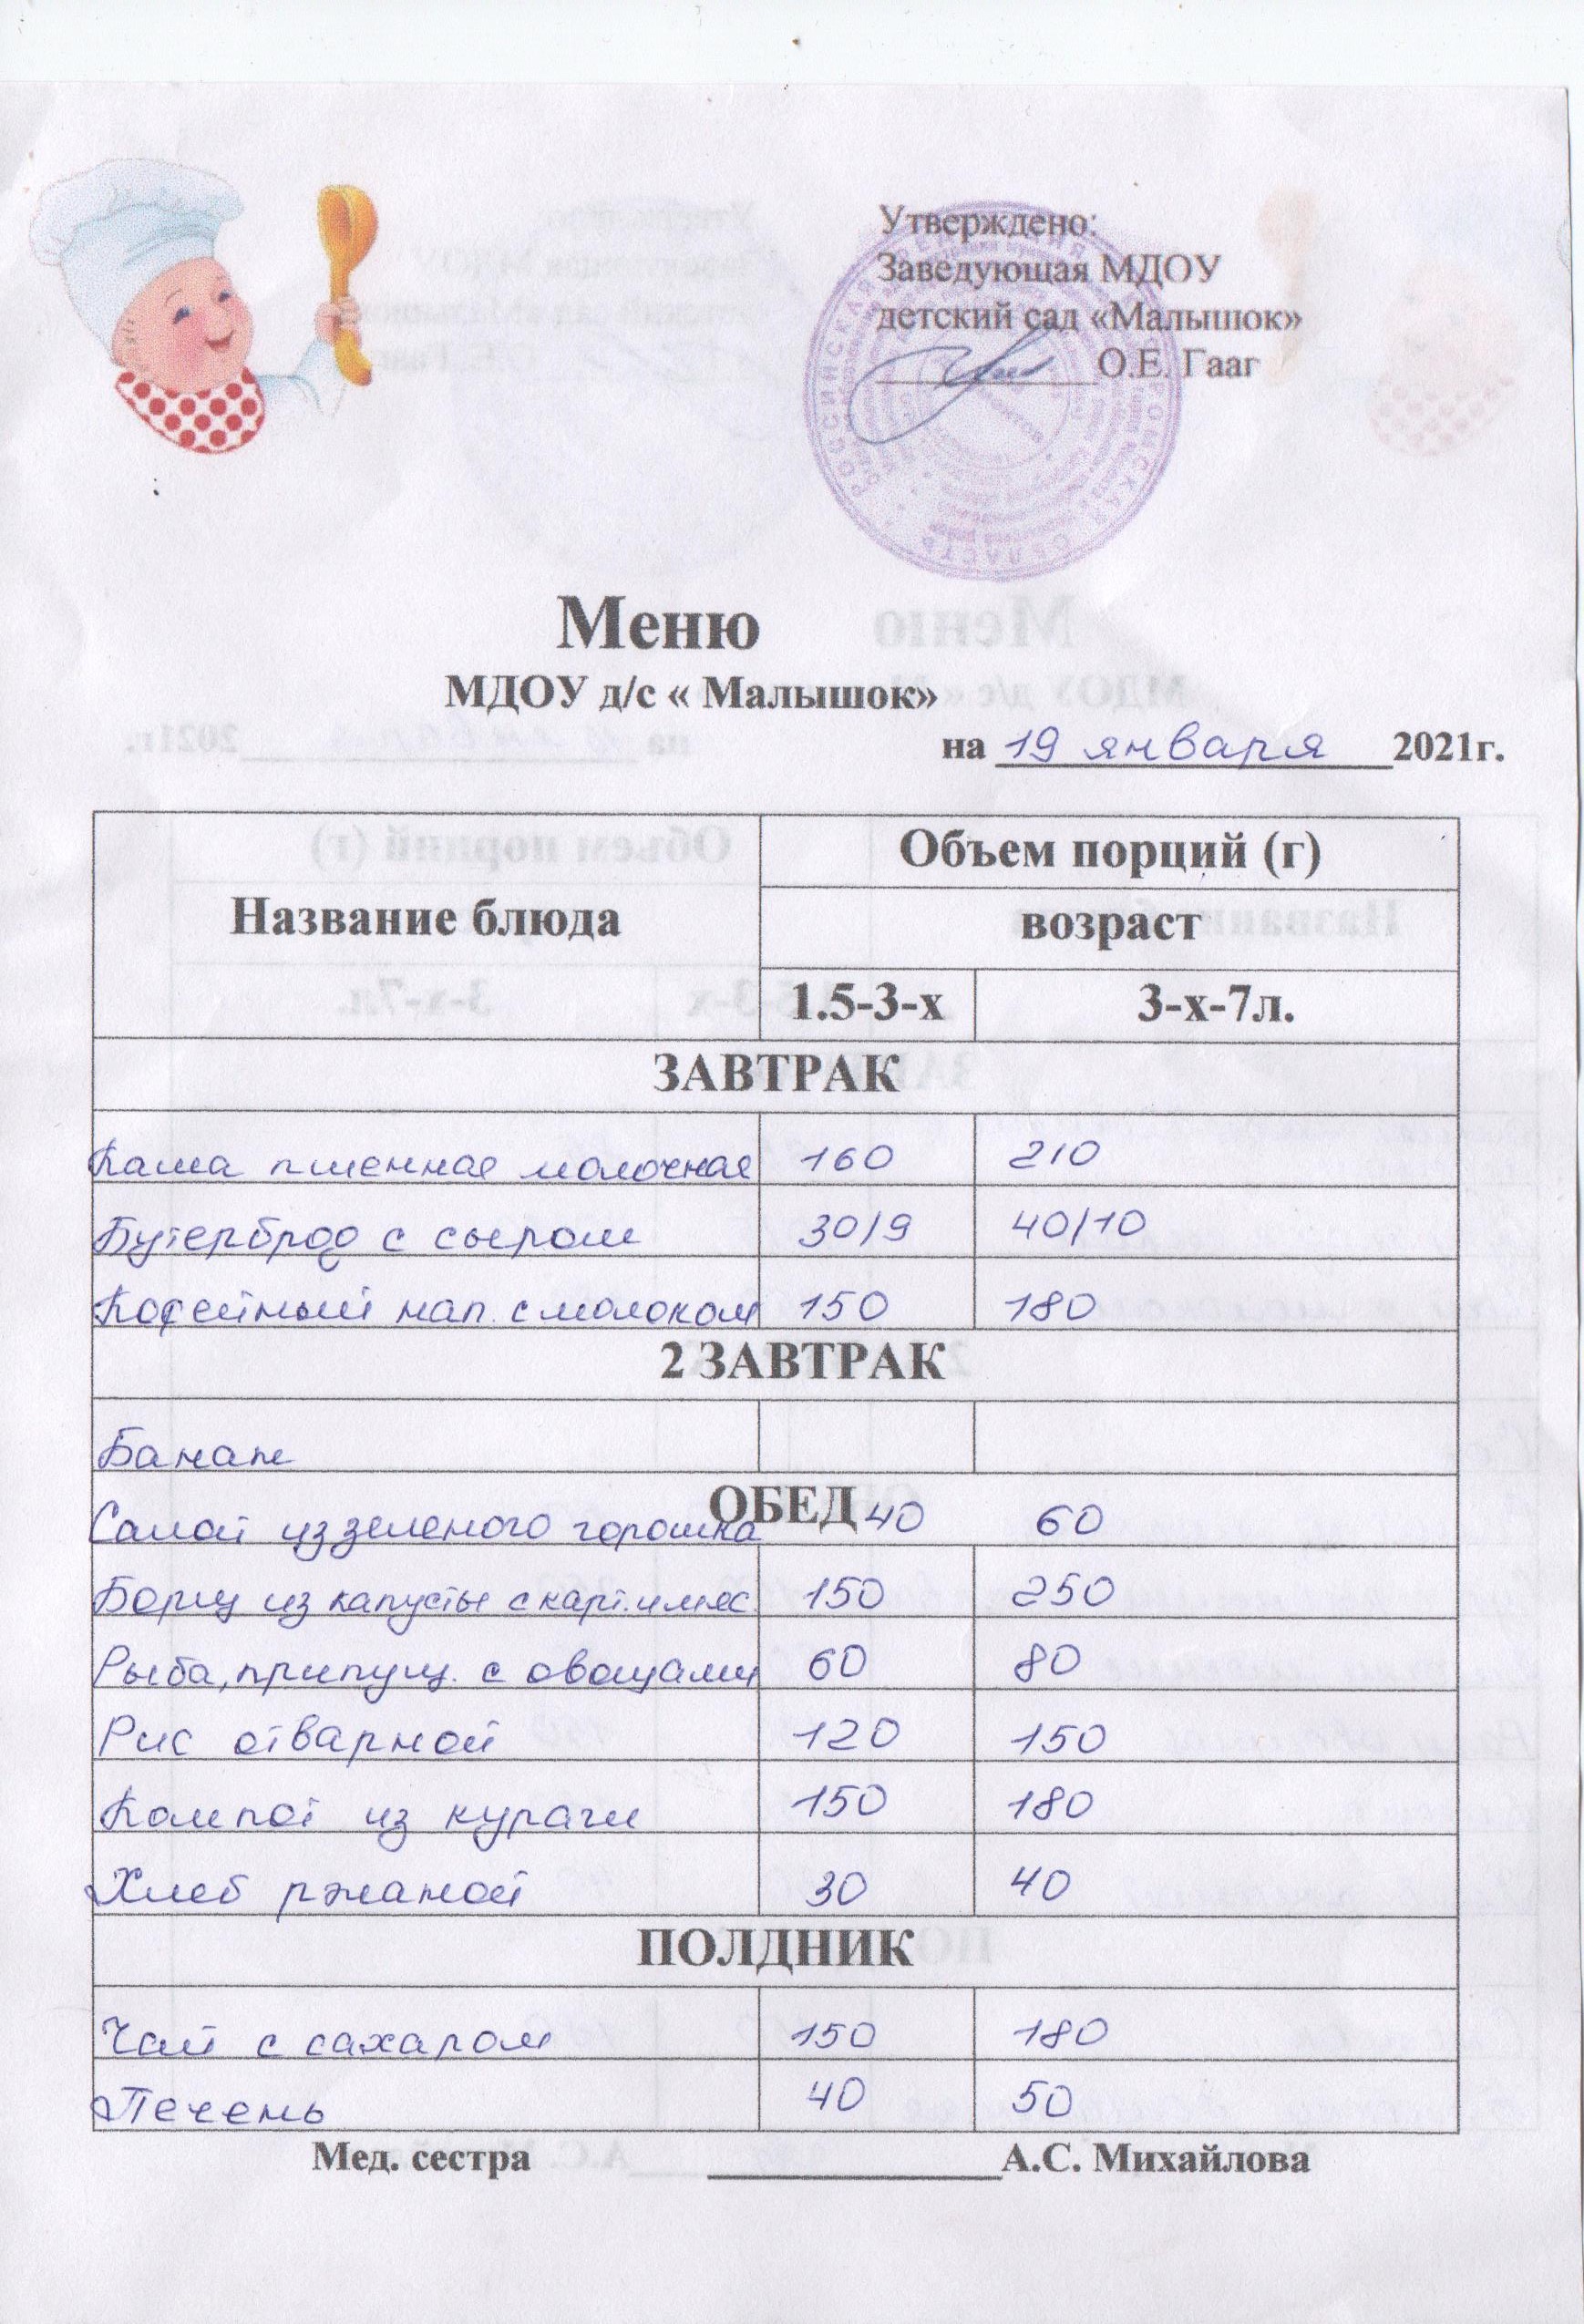 Утверждено:
Заведующая МДОУ
детский сад «Малышок»
О.Е. Гааг
РОССИЙСКАЯ ФЕДЕРАЦИЯ
ТОМСКАЯ ОБЛАСТЬ
Меню
МДОУ д/с « Малышок»
на 19 января 2021г.
Название блюда
Объем порций (г)
возраст
1.5-3-х 3-х-7л.
ЗАВТРАК
Каша пшенная молочная 160 210
Бутерброд с сыром 30/9 40/10
Кофейный нап. с молоком 150 180
2 ЗАВТРАК
Банан
ОБЕД
Салат из зеленого горошка 40 60
Борщ из капусты с карт. и мяс. 150 250
Рыба, припущ. с овощами 60 80
Рис отварной 120 150
Компот из кураги 150 180
Хлеб ржаной 30 40
ПОЛДНИК
Чай с сахаром 150 180
Печень 40 50
Мед. сестра А.С. Михайлова